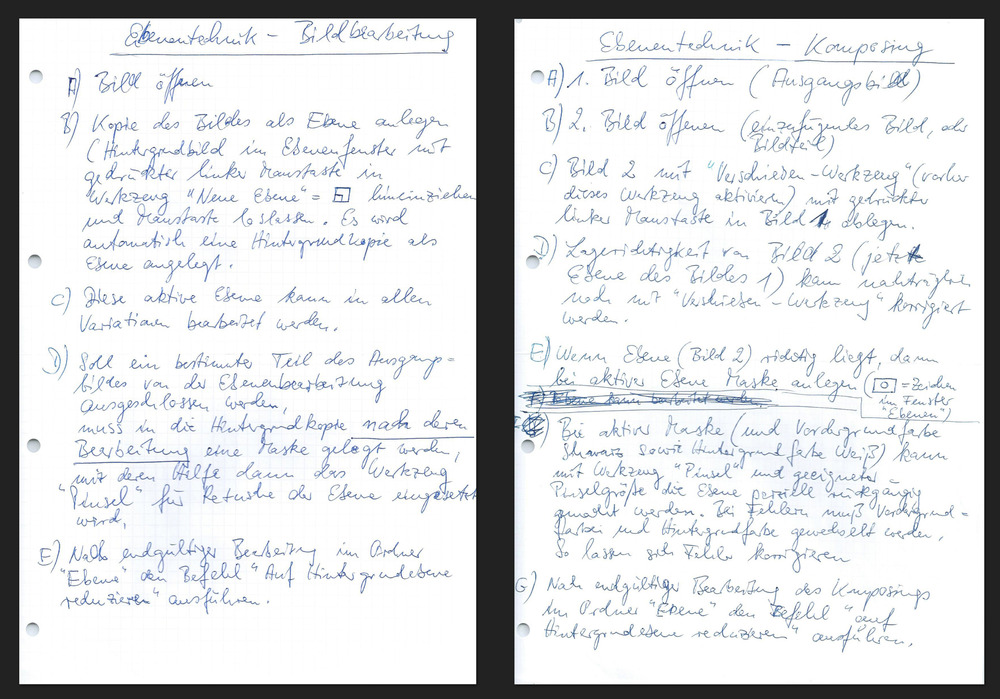 Ebenentechnik - Bildbearbeitung
A) Bild öffnen
B) Kopie des Bildes als Ebene anlegen
(Hintergrundbild im Ebenenfenster mit
gedrückter linker Maustaste in
Werkzeug "Neue Ebene" = hineinziehen
und Maustaste loslassen. Es wird
automatisch eine Hintergrundkopie als
Ebene angelegt.
C) Diese aktive Ebene kann in allen
Variationen bearbeitet werden.
D) Soll ein bestimmter Teil des Ausgangs=
bildes von der Ebenenbearbeitung
ausgeschlossen werden,
muss in die Hintergrundkopie nach deren
Bearbeitung eine Maske gelegt werden,
mit deren Hilfe dann das Werkzeug
"Pinsel" für Retusche der Ebene eingesetzt
wird.
E) Nach endgültiger Bearbeitung im Ordner
"Ebene" den Befehl "Auf Hintergrundebene
reduzieren" ausführen.
Ebenentechnik - Komposing
A) 1. Bild öffnen (Ausgangsbild)
B) 2. Bild öffnen (einzufügendes Bild, oder
Bildteil)
C) Bild 2 mit "Verschieben-Werkzeug" (vorher
dieses Werkzeug aktivieren) mit gedrückter
linker Maustaste in Bild 1 ablegen.
D) Lagerichtigkeit von Bild 2 (jetzt
Ebene des Bildes 1) kann nachträglich
noch mit "Verschieben-Werkzeug" korrigiert
werden.
E) Wenn Ebene (Bild 2) richtig liegt, dann
bei aktiver Ebene Maske anlegen
( = Zeichen
im Fenster
"Ebenen")
F) Ebene kann bearbeitet werden.
Bei aktiver Maske (und Vordergrundfarbe
Schwarz sowie Hintergrundfarbe Weiß) kann
mit Werkzeug "Pinsel" und geeigneter
Pinselgröße die Ebene parzielle rückgängig
gemacht werden. Bei Fehlern muß Vordergrund=
farbe und Hintergrundfarbe gewechselt werden.
So lassen sich Fehler korrigieren
G) Nach endgültiger Bearbeitung des Komposings
im Ordner "Ebene" den Befehl "auf
Hintergrundebene reduzieren" ausführen.